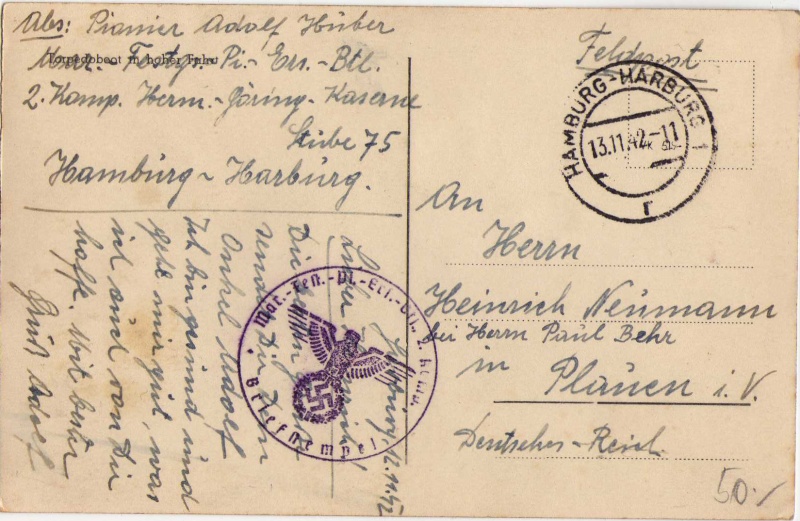 Abs: Pionier Adolf Huber
Torpedoboot in hoher Fahrt
Mar.-Festgs.-Pi.-Ers.-Btl.
2. Komp. Herm.-Göring-Kaserne
Stube 75
Hamburg-Harburg.
Feldpost
HAMBURG-HARBURG 1
13.11.42-11
r
An
Herrn
Heinrich Neumann
bei Herrn Paul Behr
in Plauen i. V.
Deutsches-Reich.
Harburg, 12.11.42
Lieber Heinrich!
Die
sendet Dir Dein
Onkel Adolf
Ich bin gesund und
geht mir gut, was
ich auch von Dir
hoffe. Mit bester
Gruß Adolf
Mar.-Fest.-Pi.-Ers.-Btl. 2. Komp.
Briefstempel
50.-